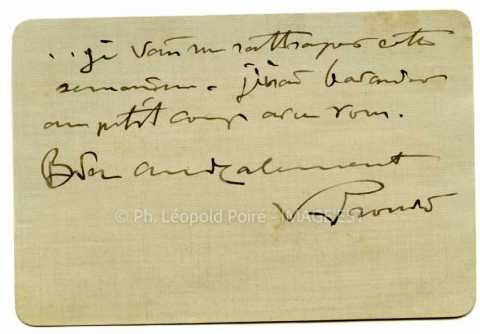 ..je vais me rattraper cette
semaine. j'irai bavarder
un petit coup avec vous.
Bien amicalement
© Ph. Léopold Poiré - IMAG'EST
V Prouvé